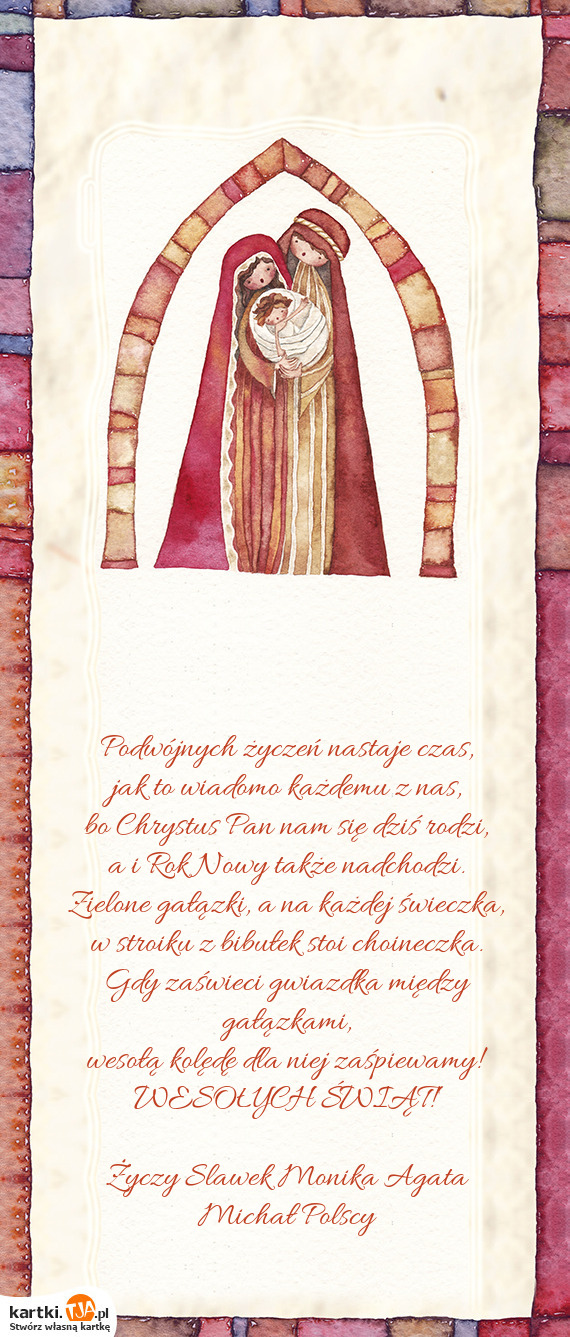 Podwójnych życzeń nastaje czas,
jak to wiadomo każdemu z nas,
bo Chrystus Pan nam się dziś rodzi,
a i Rok Nowy także nadchodzi.
Zielone gałązki, a na każdej świeczka,
w stroiku z bibułek stoi choineczka.
Gdy zaświeci gwiazdka między
gałązkami,
wesołą kolędę dla niej zaśpiewamy!
WESOŁYCH ŚWIĄT!
Życzy Slawek Monika Agata
Michał Polscy
kartki.TJA.pl
Stwórz własną kartkę